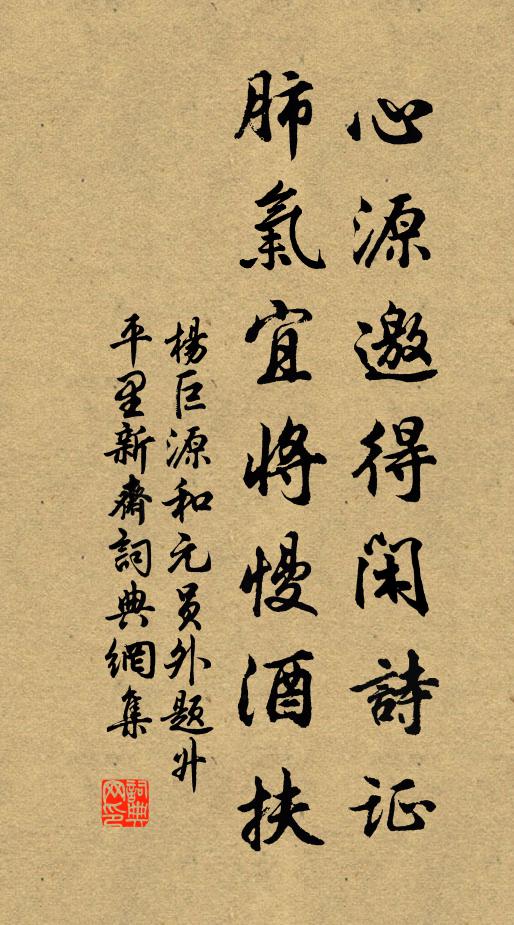 心源邀得閑詩证
肺氣宜將慢酒扶
楊巨源和元員外題升
平里新齋詞典網集
詞典网印